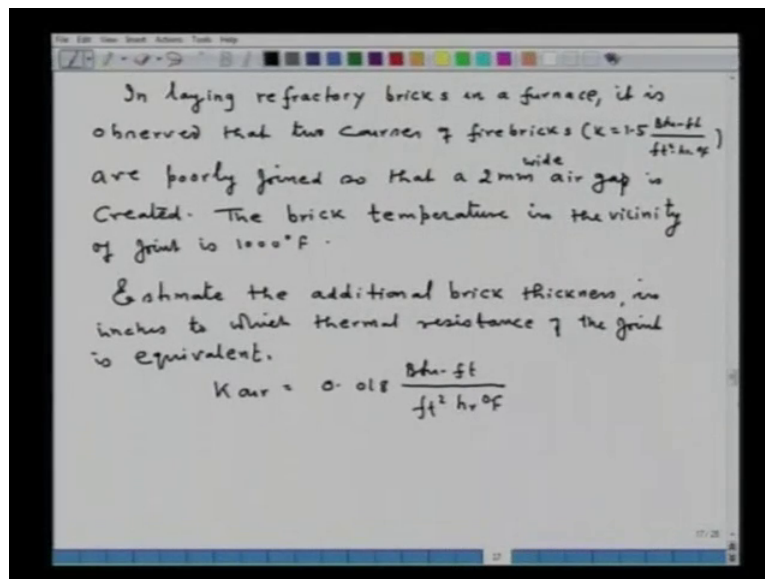 In laying refractory bricks in a furnace, it is
observed that two courses of firebricks (K = 1.5 Btu-ft / ft² hr °F)
are poorly joined so that a 2 mm wide air gap is
Created. The brick temperature in the vicinity
of joint is 1000°F.
Estimate the additional brick thickness, in
inches to which thermal resistance of the joint
is equivalent.
K air = 0.018 Btu-ft / ft² hr °F
17/28
17